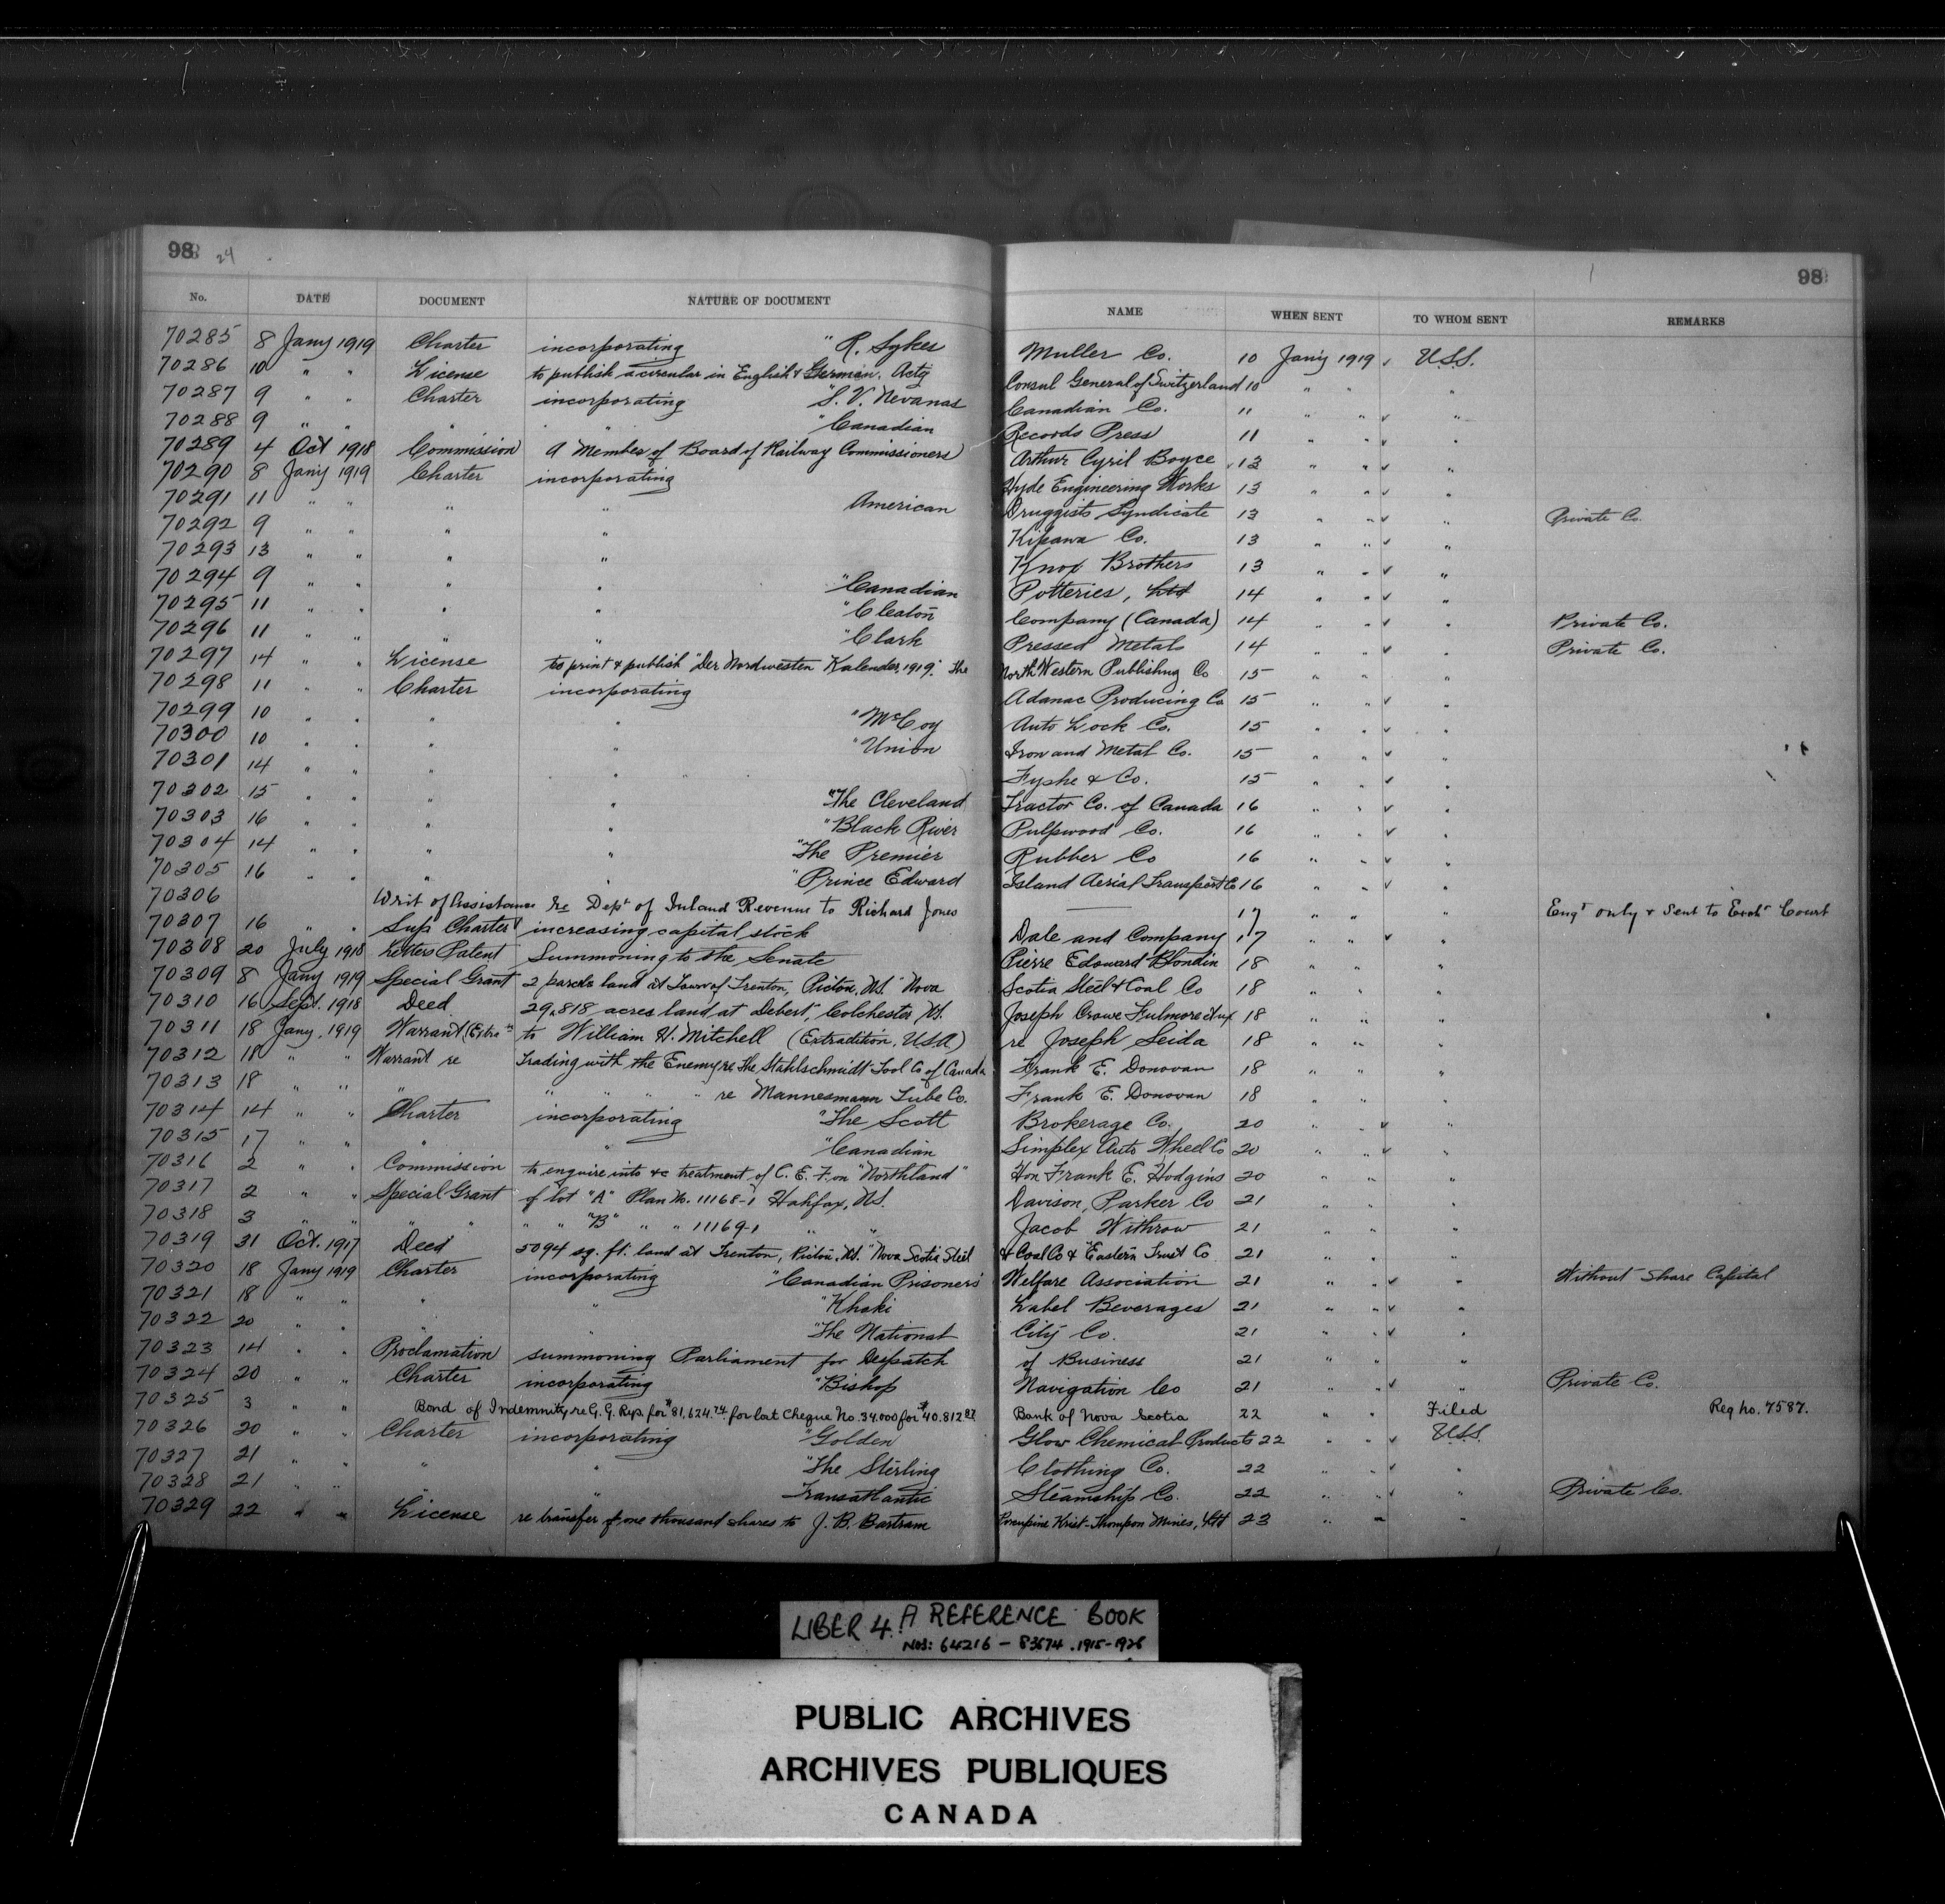 98 24 98
No. DATE DOCUMENT NATURE OF DOCUMENT NAME WHEN SENT TO WHOM SENT REMARKS
70285 8 Jany 1919 Charter incorporating " R. Sykes Muller Co. 10 Jany 1919 U.S.S.
70286 10 " " License to publish a circular in English & German. Actg Consul General of Switzerland 10 " " "
70287 9 " " Charter incorporating "S. V. Nevanas Canadian Co. 11 " " ✓ "
70288 9 " " " " "Canadian Records Press 11 " " ✓ "
70289 4 Oct 1918 Commission A Member of Board of Railway Commissioners Arthur Cyril Boyce 13 " " ✓ "
70290 8 Jany 1919 Charter incorporating Hyde Engineering Works 13 " " ✓ "
70291 11 " " " " American Druggists Syndicate 13 " " ✓ " Private Co.
70292 9 " " " " Kipawa Co. 13 " " ✓ "
70293 13 " " " " Knox Brothers 13 " " ✓ "
70294 9 " " " " "Canadian Potteries, Ltd 14 " " ✓ "
70295 11 " " " " "Cleaton Company (Canada) 14 " " ✓ " Private Co.
70296 11 " " " " "Clark Pressed Metals 14 " " ✓ " Private Co.
70297 14 " " License to print & publish "Der Nordwesten Kalender, 1919". The North Western Publishing Co 15 " " "
70298 11 " " Charter incorporating Adanac Producing Co 15 " " ✓ "
70299 10 " " " " "McCoy Auto Lock Co. 15 " " ✓ "
70300 10 " " " " "Union Iron and Metal Co. 15 " " ✓ "
70301 14 " " " " Fyshe & Co. 15 " " ✓ "
70302 15 " " " " "The Cleveland Tractor Co. of Canada 16 " " ✓ "
70303 16 " " " " "Black River Pulpwood Co. 16 " " ✓ "
70304 14 " " " " "The Premier Rubber Co 16 " " ✓ "
70305 16 " " " " "Prince Edward Island Aerial Transport Co 16 " " ✓ "
70306 Writ of Assistance re Dept of Inland Revenue to Richard Jones 17 " " Engt only & Sent to Exchr Court
70307 16 " " Sup Charter increasing capital stock Dale and Company 17 " " ✓ "
70308 20 July 1918 Letters Patent Summoning to the Senate Pierre Edouard Blondin 18 " " "
70309 8 Jany 1919 Special Grant 2 parcels land at Town of Trenton, Pictou, N.S. "Nova Scotia Steel & Coal Co 18 " " "
70310 16 Sept. 1918 Deed 29.818 acres land at Debert, Colchester N.S. Joseph Crowe Fulmore et ux 18 " " "
70311 18 Jany. 1919 Warrant (Extra to William H. Mitchell (Extradition, U.S.A) re Joseph Seida 18 " " "
70312 18 " " Warrant re Trading with the Enemy re The Stahlschmidt Tool Co of Canada Frank E. Donovan 18 " " "
70313 18 " " " " " " " re Mannesmann Tube Co. Frank E. Donovan 18 " " "
70314 14 " " Charter incorporating "The Scott Brokerage Co. 20 " " ✓ "
70315 17 " " " " "Canadian Simplex Auto Wheel Co 20 " " ✓ "
70316 2 " " Commission to enquire into &c treatment of C. E. F. on "Northland" Hon Frank E. Hodgins 20 " " "
70317 2 " " Special Grant of lot "A" Plan No. 11168-1 Halifax, N.S. Davison, Parker Co 21 " " "
70318 3 " " " " " " "B" " " 11169-1 " " Jacob Withrow 21 " " "
70319 31 Oct. 1917 Deed 5094 sq. ft. land at Trenton, Pictou, N.S. "Nova Scotia Steel & Coal Co & Eastern Trust Co 21 " " "
70320 18 Jany 1919 Charter incorporating "Canadian Prisoners' Welfare Association 21 " " ✓ " Without Share Capital
70321 18 " " " " "Khaki Label Beverages 21 " " ✓ "
70322 20 " " " " "The National City Co. 21 " " ✓ "
70323 14 " " Proclamation summoning Parliament for Despatch of Business 21 " " "
70324 20 " " Charter incorporating "Bishop Navigation Co 21 " " ✓ " Private Co.
70325 3 " " Bond of Indemnity re G. G. Rys. for $81,624.74 for lost Cheque No. 34.000 for $40.812.37 Bank of Nova Scotia 22 " " Filed Reg no. 7587.
70326 20 " " Charter incorporating "Golden Glow Chemical Products 22 " " ✓ U.S.S.
70327 21 " " " " "The Sterling Clothing Co. 22 " " ✓ "
70328 21 " " " " Transatlantic Steamship Co. 22 " " ✓ " Private Co.
70329 22 " " License re transfer of one thousand shares to J. B. Bartram Porcupine Krist-Thompson Mines, Ltd 23 " " "
LIBER 4. A REFERENCE BOOK
NOS: 64216 – 83674. 1915-1926
PUBLIC ARCHIVES
ARCHIVES PUBLIQUES
CANADA